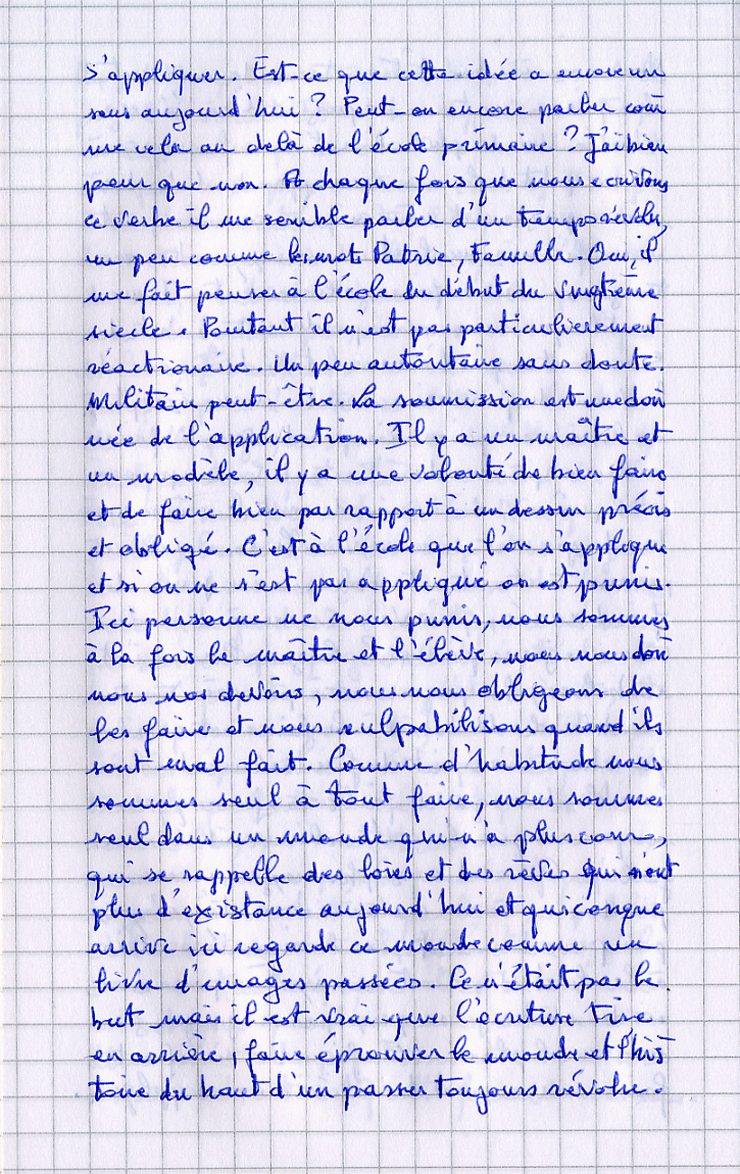 s'appliquer. Est-ce que cette idée a encore un
sens aujourd'hui ? Peut-on encore parler com
me cela au delà de l'école primaire ? J'ai bien
peur que non. A chaque fois que nous écrivons
ce verbe il me semble parler d'un temps révolu,
un peu comme les mots Patrie, Famille. Oui, il
me fait penser à l'école du début du vingtième
siecle. Pourtant il n'est pas particulierement
réactionaire. Un peu autoritaire sans doute.
Militaire peut-être. La soumission est une don
née de l'application. Il y a un maître et
un modèle, il y a une volonté de bien faire
et de faire bien par rapport à un dessin précis
et obligé. C'est à l'école que l'on s'applique
et si on ne s'est pas appliqué on est punis.
Ici personne ne nous punis, nous sommes
à la fois le maître et l'élève, nous nous don
nons nos devoirs, nous nous obligeons de
les faire et nous culpabilisons quand ils
sont mal fait. Comme d'habitude nous
sommes seul à tout faire, nous sommes
seul dans un monde qui n'a plus cours,
qui se rappelle des loies et des qui n'ont
plus d'existance aujourd'hui et quiconque
arrive ici regarde ce monde comme un
livre d'images passées. Ce n'était pas le
but mais il est vrai que l'écriture tire
en arrière, faire éprouver le monde et l'his
toire du haut d'un passer toujours révolu.